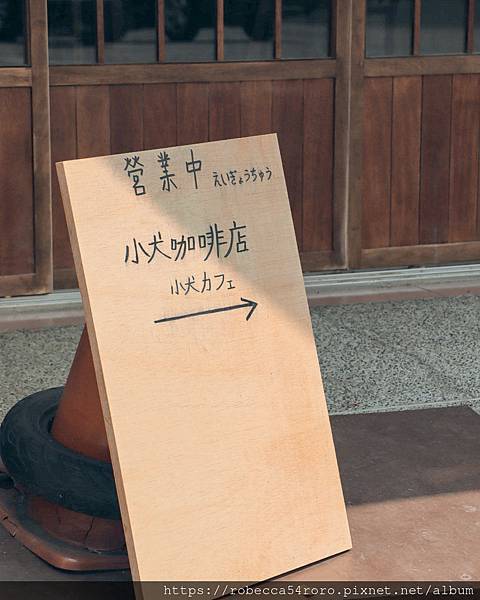 營業中 えいぎょうちゅう
小犬咖啡店
小犬カフェ
https://robecca54roro.pixnet.net/album